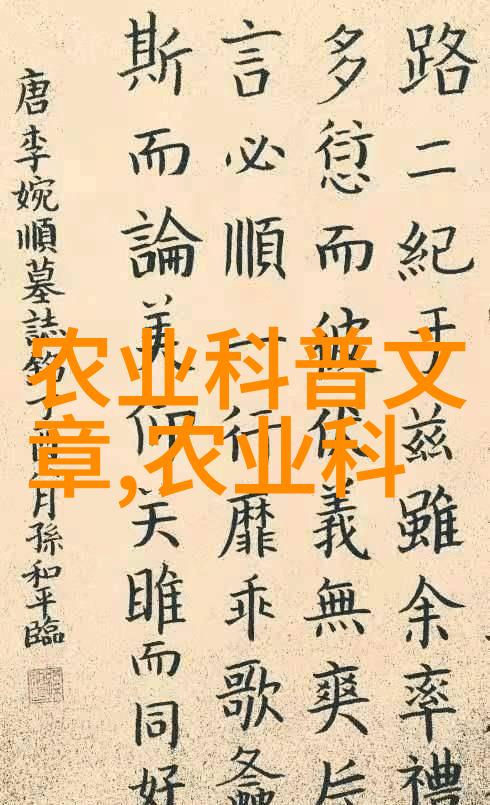 路二紀于兹雖余率禮
多愆而彼義無爽
言必順一行靡乖歌螽
斯而論美关雎而同好
唐李婉順墓誌銘丁酉月孫和平臨
农业科普文
章,农业科